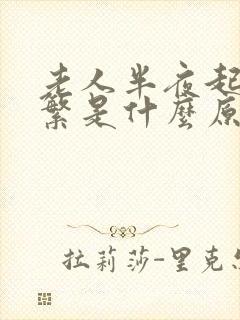 老人半夜起
繁是什麼原
拉莉莎-里克